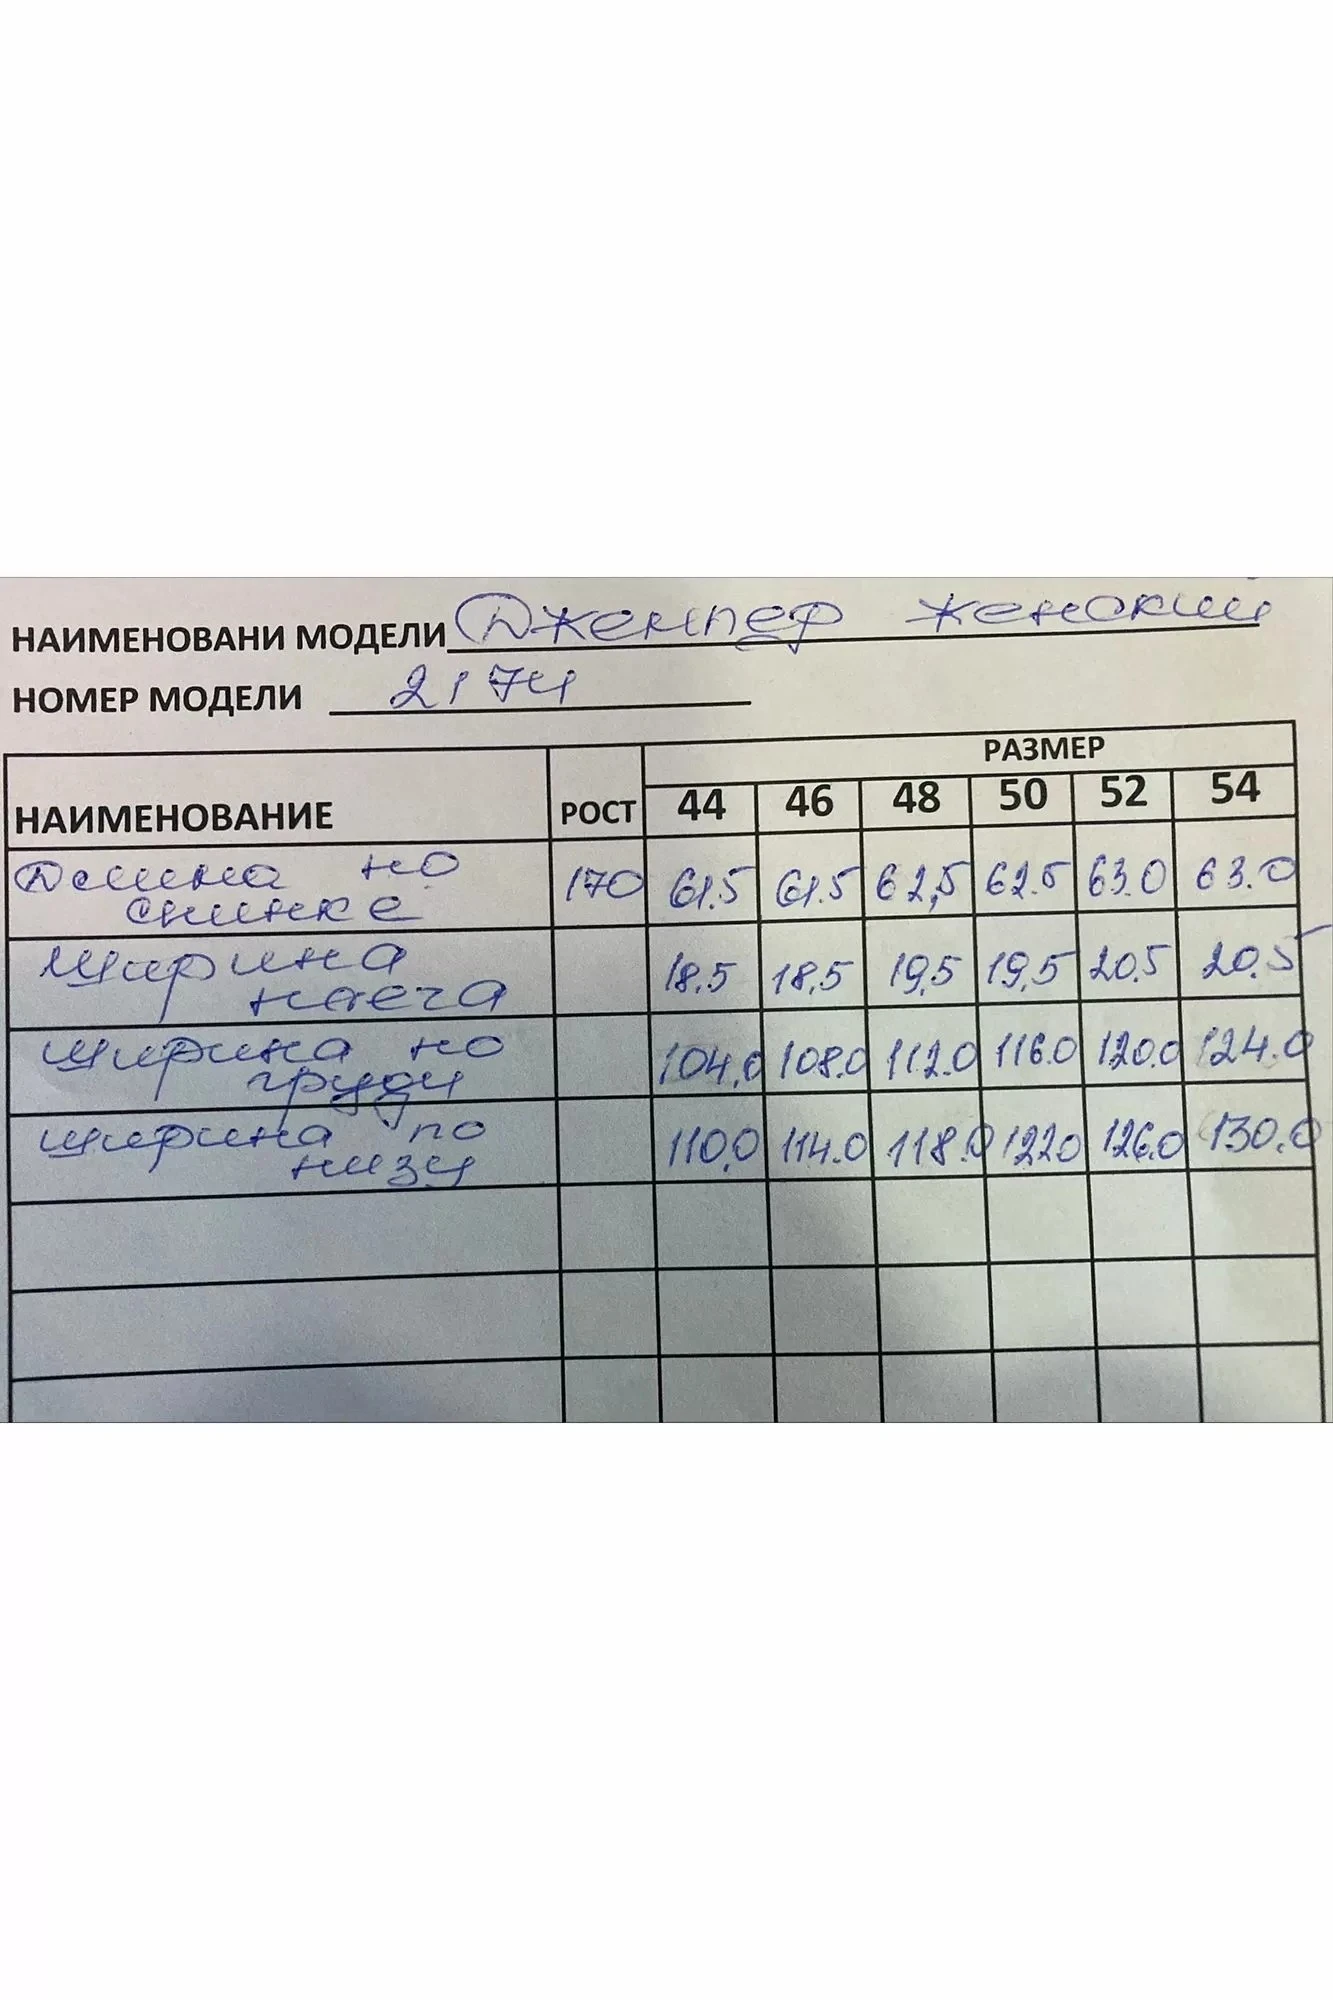 НАИМЕНОВАНИ МОДЕЛИ Джемпер женский
НОМЕР МОДЕЛИ 2174
РАЗМЕР
НАИМЕНОВАНИЕ РОСТ 44 46 48 50 52 54
Длина по 170 61.5 61.5 62,5 62.5 63.0 63.0
спинке
Ширина 18,5 18,5 19,5 19,5 20.5 20.5
плеча
ширина по 104,0 108.0 112.0 116.0 120.0 124.0
груди
ширина по 110,0 114.0 118.0 1220 126.0 130.0
низу